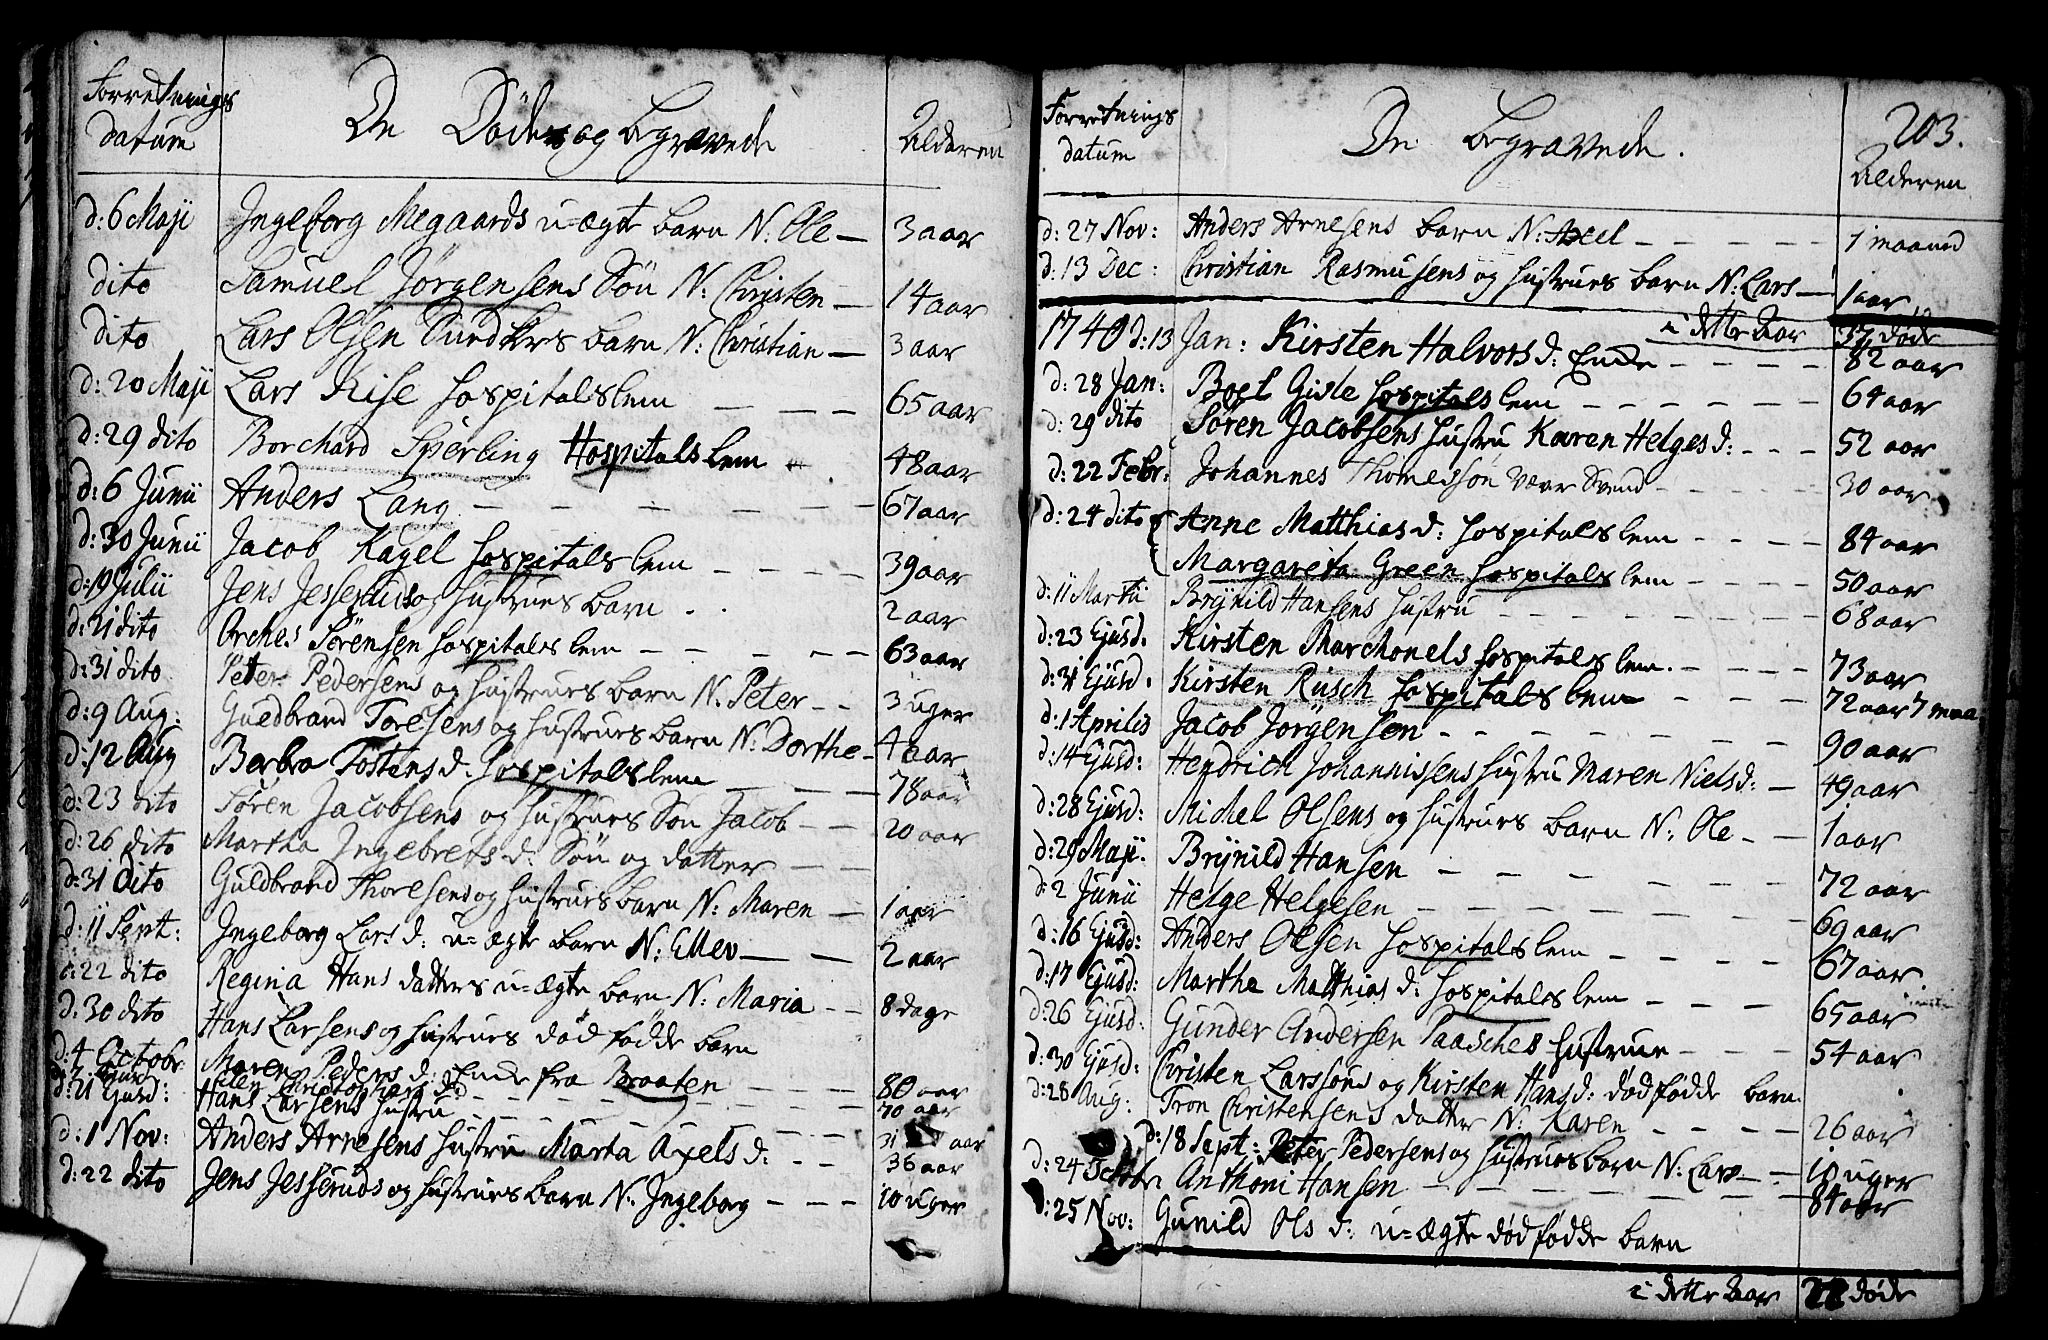 Forretnings datum
De Døde og begravede
Alderen
d: 6 Maji Ingeborg Megaards u-ægte barn N. Ole — 3 aar
dito Samuel Jørgensens Søn N: Christen — 14 aar
dito Lars Olsen barn N: Christian — 3 aar
d: 20 Maji Lars Kise hospitalslem — — — 65 aar
d: 29 dito Borchard Sperling Hospitalslem 48 aar
d: 6 Junii Anders Lang — — — — — — 67 aar
d: 30 Junii Jacob Kagel hospitals lem — — — — 39 aar
d: 19 Julii Jens Jesseruds og hustrues barn . . 2 aar
d: 21 dito Sørensen hospitals lem — — — — — 63 aar
d: 31 dito Peter Pedersens og hustrues barn N. Peter — — 3 uger
d: 9 Aug: Guldbrand Toresens og hustrues barn N: Dorthe — 4 aar
d: 12 Aug Barbra Tostens d. hospitalslem — — — 78 aar
d: 23 dito Søren Jacobsens og hustrues Søn Jacob — — 20 aar
d: 26 dito Martha Ingebrets d. Søn og datter — —
d: 31 dito Guldbrand Thoresens og hustrues barn N: Maren — 1 aar
d: 11 Sept: Ingeborg Lars d: u-ægte barn N: Ellev — — 2 aar
d: 22 dito Regina Hans datters u-ægte barn N: Maria — — 8 dage
d. 30 dito Hans Larsens og hustrues død fødde barn
d: 4 Octobr: Maren Peders d. Ende fra Braaten — — — 80 aar
70 aar
d: 21 Ejusd: Hans Larsens hustru — — — — 31 aar
d: 1 Nov: Anders Arnesens hustru Marta Axels d: — — 36 aar
d: 22 dito Jens Jesseruds og hustrues barn N: Ingeborg — — — 10 uger
Forretnings datum
De begravede.
203.
Alderen
d: 27 Nov: Anders Arnesens barn N: Axel — — — — — 1 maaned
d: 13 Dec: Christian Rasmusens og hustrues barn N: Lars — 1 aar
i dette Aar 37 døde
1740 d: 13 Jan: Kirsten Halvors d: Ende — — — — 82 aar
d: 28 Jan: Boel Gisle hospitals lem — — — — — — 64 aar
d: 29 dito Søren Jacobsens hustru Karen Helges d: — — — 52 aar
d: 22 Febr: Johannes Thomesson Svend — — — — 30 aar
d: 24 dito Anne Matthias d: hospitals lem — — — — 84 aar
Margareta Green hospitals lem — — — — 50 aar
d: 11 Martii Brynild Hansens hustru — — — — — — 68 aar
d: 23 Ejusd. Kirsten Marchonels hospitals lem. — — — — 73 aar
d: 31 Ejusd. Kirsten Rusch hospitals lem — — — — 72 aar 7 maa
d: 1 Aprilis Jacob Jørgensen — — — — — — — 90 aar
d: 14 Ejusd: Hendrich Johannissens hustru Maren Niels d: — 49 aar
d: 28 Ejusd: Michel Olsens og hustrues barn N: Ole — — 1 aar
d: 29 Maji. Brynild Hansen — — — — — — 72 aar
d: 2 Junii Helge Helgesen — — — — — — — 69 aar
d: 16 Ejusd: Anders Olsen hospitals lem — — — — 67 aar
d: 17 Ejusd: Martha Matthias d: hospitals lem — — — 65 aar
d: 26 Ejusd: Gunder Andersen Paasches hustrue — — — 54 aar
d: 30 Ejusd: Christen Larssons og Kirsten Hans d: dødfødde barn.
d: 28 Aug: Tron Christensens datter N: Karen — — — — 26 aar
d: 18 Sept: Peter Pedersens og hustrues barn N: Lars — — 10 uger
d: 24 Octobr Anthoni Hansen — — — — — — — — 84 aar
d: 25 Nov: Gunild Ols d: u-ægte dødfødde barn
i dette Aar 22 døde